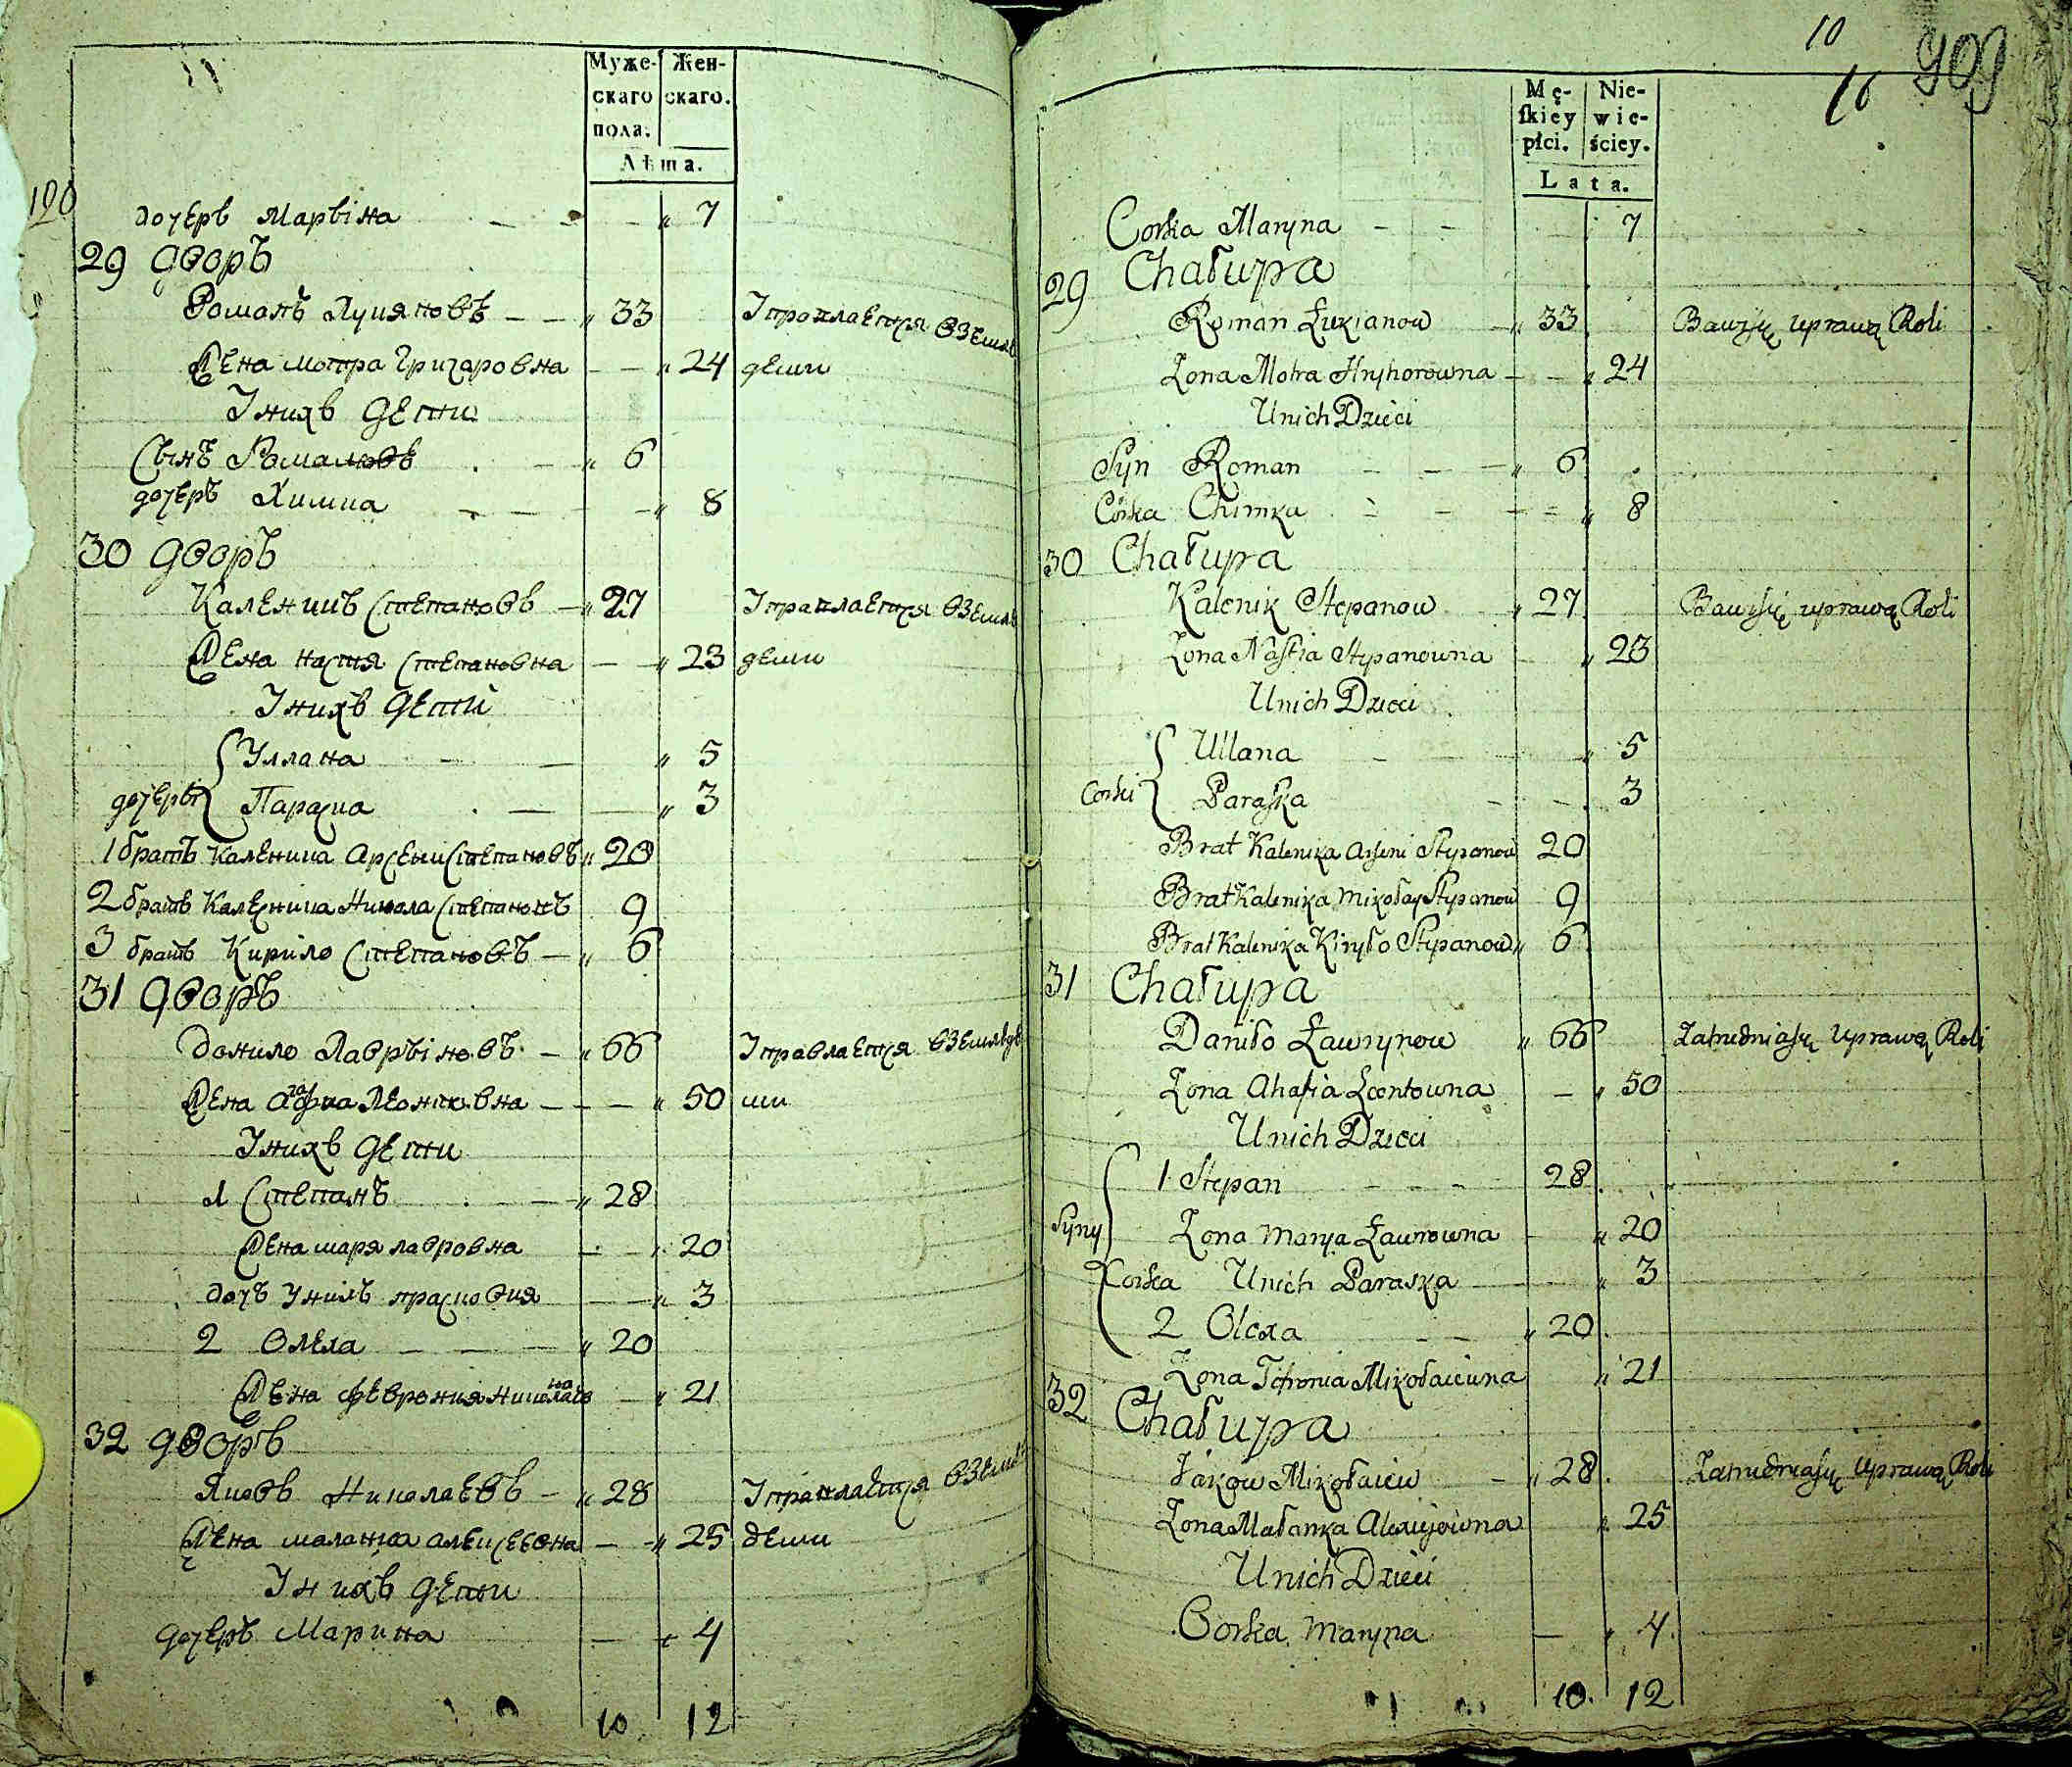 Муже-
скаго
пола.
Жен-
скаго.
Лѣта.
120
дочеръ Марвіна — — — " 7
29 дворъ
Романъ Лукяновъ — — " 33 Iпраплается вземле
Жена мотра Григаровна — — " 24 дели
Iнихъ дети
Сынъ Романовъ — " 6
дочеръ Химка — — — " 8
30 дворъ
Каленикъ Степановъ — " 27 Iпраплается вземле
Жена настя Степановна — — " 23 дели
Iнихъ дети
Уллана — — " 5
дочеръ Параска — — " 3
1 братъ Каленика Арсени Степановъ " 20
2 братъ Каленика Никола Степановъ 9
3 братъ Кирило Степановъ — " 6
31 дворъ
Данило Лаврѣіновъ — " 66 Iправлается вземледе
Жена агафиа Леонтовна — — — " 50 ли
Iнихъ дети
1 Степанъ — " 28
Жена маря лавровна — — " 20
дочъ унихъ прасковия — — " 3
2 Олекса — — — " 20
Жена феврония николаевна — " 21
32 дворъ
Яковъ Николаевъ — " 28 Iпраплается вземле
Жена маланка алексеевна — — " 25 дели
Iнихъ дети
дочеръ Марина — " 4
10 12
10
16
909
Mę-
skiey
płci.
Nie-
wie-
ściey.
Lata.
Corka Maryna — — 7
29 Chałupa
Roman Łukianow — " 33 Bawisię uprawą Roli
Zona Motra Hryhorowna — — " 24
Unich Dzieci
Syn Roman — — — " 6
Corka Chimka — — — — " 8
30 Chałupa
Kalenik Stepanow " 27 Bawisię uprawą Roli
Zona Nastia Stepanowna — " 23
Unich Dzieci
Ullana — — " 5
Corki Paraska — — 3
Brat Kalenika Arseni Stepanow 20
Brat Kalenika Mikołay Stepanow 9
Brat Kalenika Kiryło Stepanow " 6
31 Chałupa
Daniło Ławrynow " 66 Zatrudniasię Uprawą Roli
Zona Ahafia Leontowna — " 50
Unich Dzieci
1 Stepan — — — 28
Syny Zona Marya Ławrowna — " 20
Corka Unich Paraska — " 3
2 Olexa — — " 20
Zona Fchronia Mikołaiewna " 21
32 Chałupa
Jakow Mikołaiew — " 28 Zatrudniasię Uprawą Roli
Zona Małanka Alexiejowna " 25
Unich Dzieci
Corka Maryna — " 4
10. 12